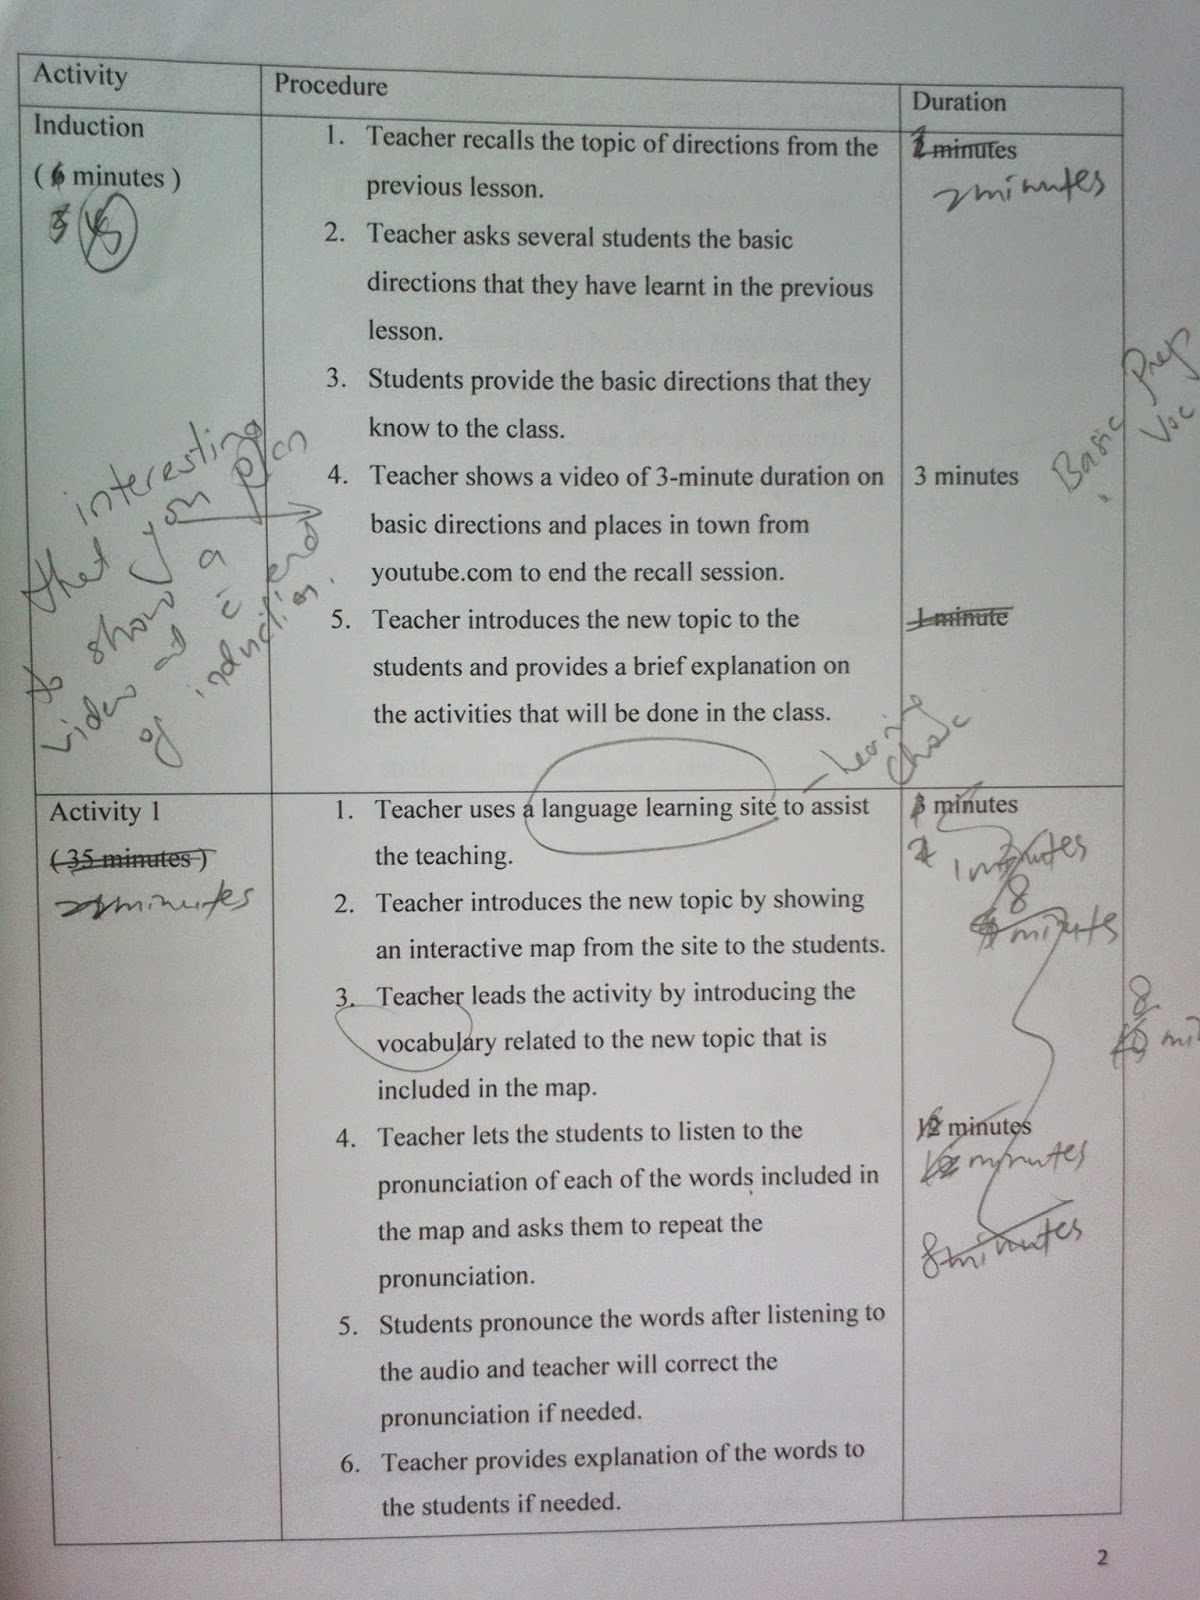 Activity
Procedure
Duration
Induction
( 6 minutes )
5
1. Teacher recalls the topic of directions from the
previous lesson.
2. Teacher asks several students the basic
directions that they have learnt in the previous
lesson.
3. Students provide the basic directions that they
know to the class.
4. Teacher shows a video of 3-minute duration on
basic directions and places in town from
youtube.com to end the recall session.
5. Teacher introduces the new topic to the
students and provides a brief explanation on
the activities that will be done in the class.
minutes
2 minutes
3 minutes
1 minute
Basic Prep
Voc
interesting
that you plan
to show a
video
of induction
Activity 1
( 35 minutes )
minutes
1. Teacher uses a language learning site to assist
the teaching.
2. Teacher introduces the new topic by showing
an interactive map from the site to the students.
3. Teacher leads the activity by introducing the
vocabulary related to the new topic that is
included in the map.
4. Teacher lets the students to listen to the
pronunciation of each of the words included in
the map and asks them to repeat the
pronunciation.
5. Students pronounce the words after listening to
the audio and teacher will correct the
pronunciation if needed.
6. Teacher provides explanation of the words to
the students if needed.
minutes
minutes
8
minutes
8
12 minutes
minutes
8 minutes
2